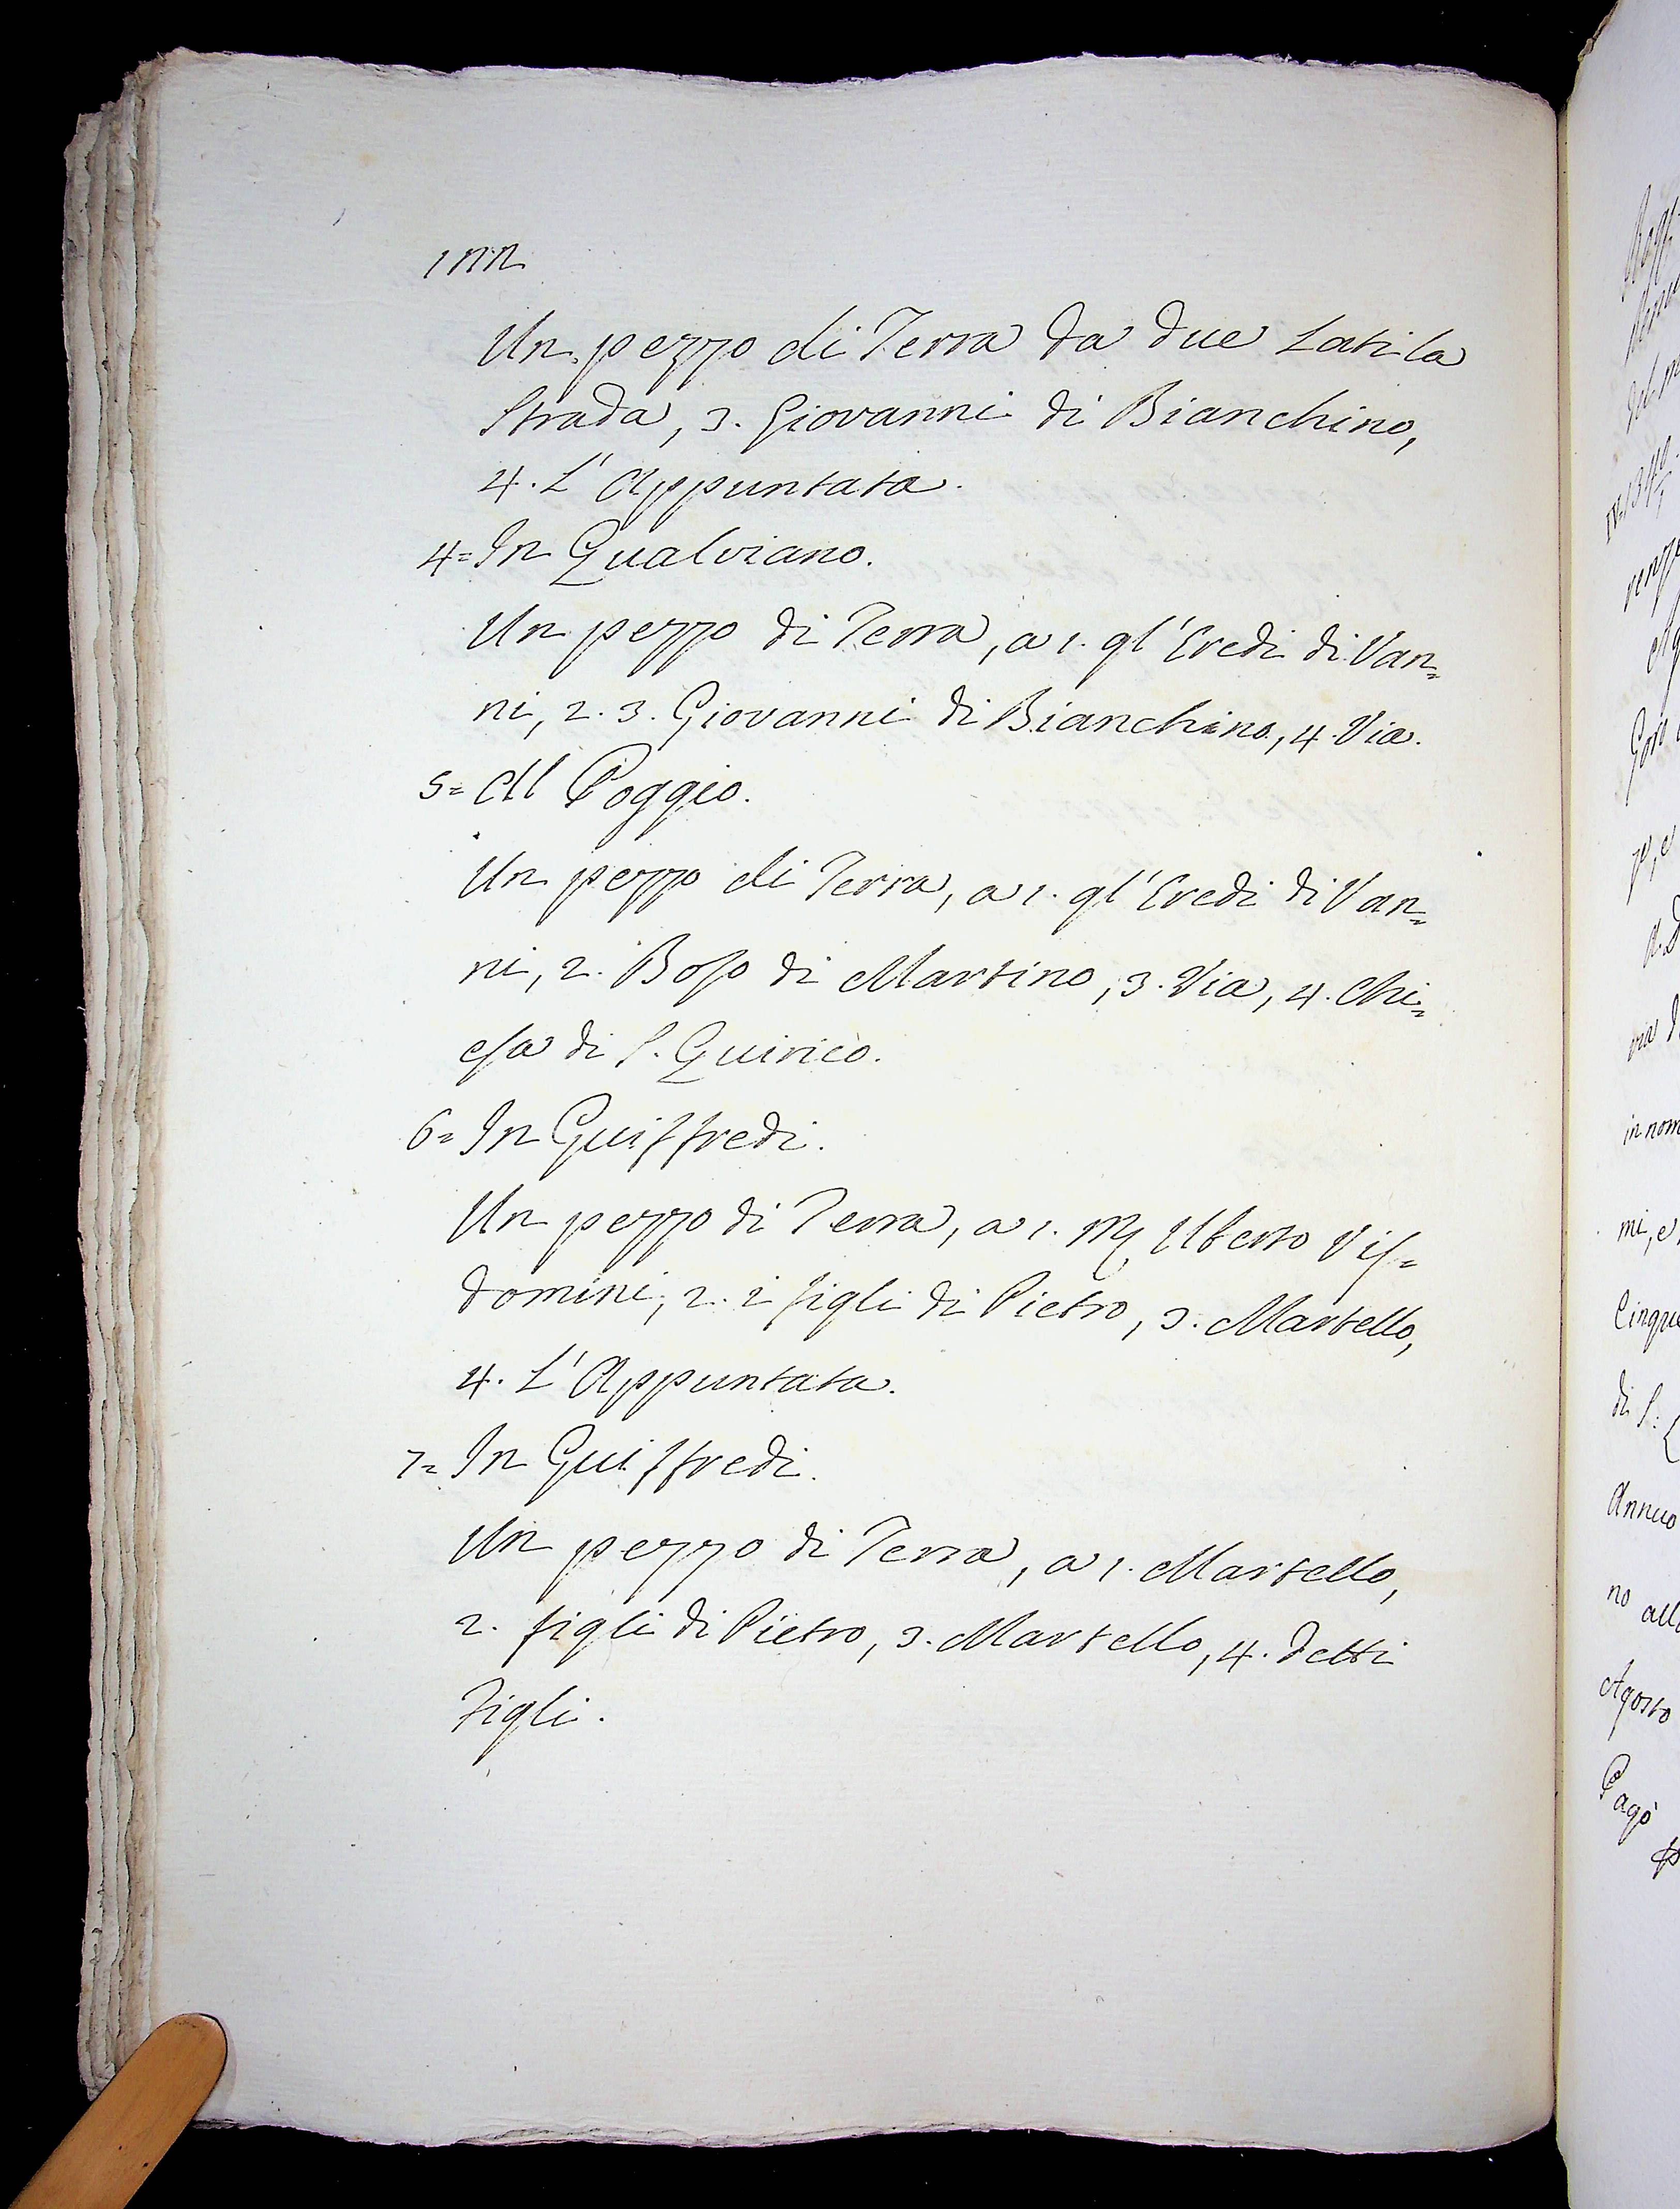 Un pezzo di Terra da due Lati la
Strada, 3. Giovanni di Bianchino,
4. L'Appuntata.
4= In Qualviano.
Un pezzo di Terra, a 1. gl'Eredi di Van=
ni, 2. 3. Giovanni di Bianchino, 4. Via.
5= Al Poggio.
Un pezzo di Terra, a 1. gl'Eredi di Van=
ni, 2. Boso di Martino, 3. Via, 4. Chi=
esa di S. Quirico.
6= In Guiffredi.
Un pezzo di Terra, a 1. M. Uberto Vis=
domini, 2. i figli di Pietro, 3. Martello,
4. L'Appuntata.
7= In Guiffredi.
Un pezzo di Terra, a 1. Martello,
2. figli di Pietro, 3. Martello, 4. detti
Figli.
in nom
mi, e
Cinque
di S.
Annuo
no all
Agosto
Pagò